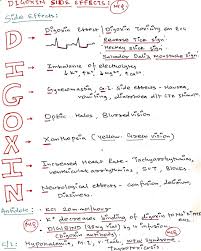 DIGOXIN SIDE EFFECTS:
Side Effects:
D Digoxin Effect / Digoxin Toxicity on ECG
Reverse Tick sign
Hockey stick sign
Salvador Dali's Moustache sign
I Imbalance of electrolytes
G Gynecomastia, G.I. side effects - Nausea, vomiting, diarrhoea
O Optic Halos, Blurred vision
X Xanthopsia (yellow-Green vision)
I Increased Heart Rate - Tachyarrhythmias, ventricular arrhythmias, SVT, Blocks
N Neurological effects - Confusion, delirium, Dizziness.
Antidote: KCl
K+ decreases binding of digoxin to Na+
DIGIBIND
Digoxin antibody
C/I: Hypokalemia, M.I., WPW syndrome